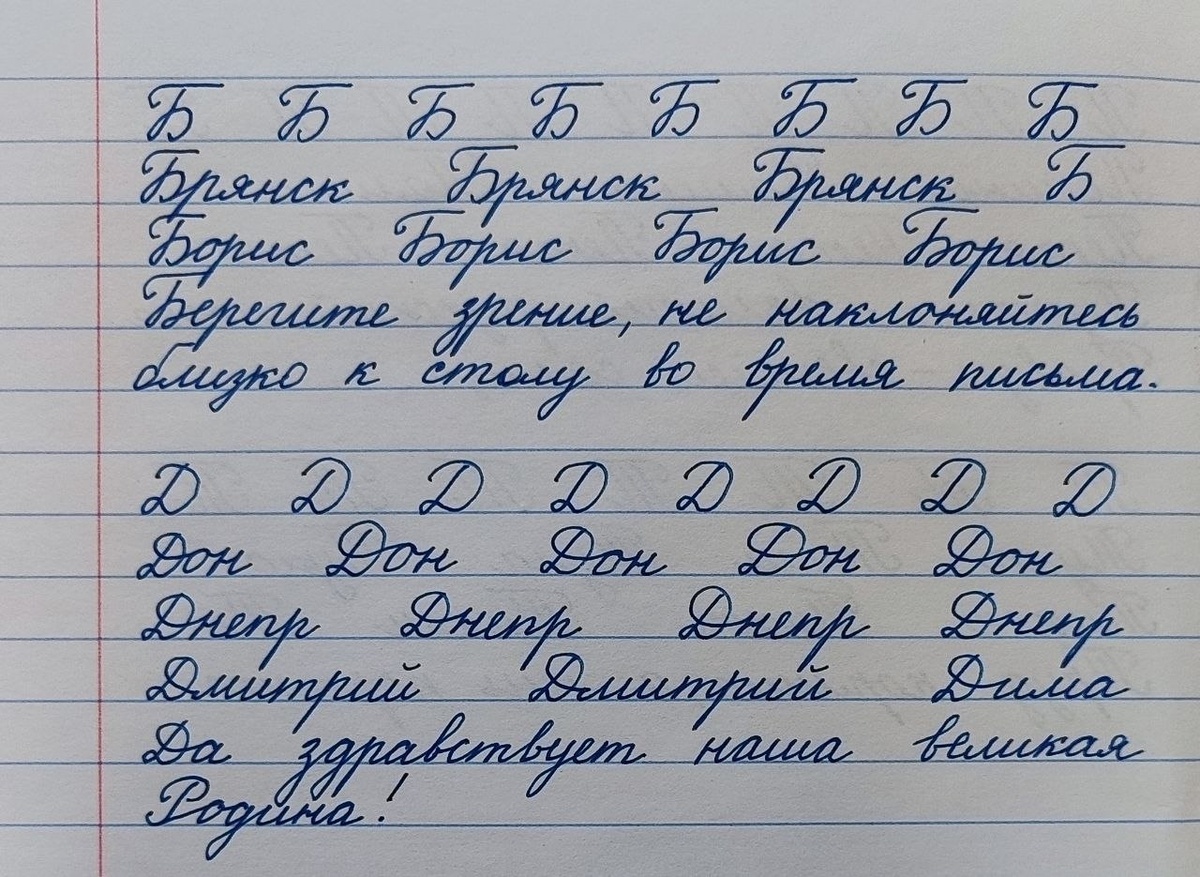 Б Б Б Б Б Б Б Б
Брянск Брянск Брянск Б
Борис Борис Борис Борис
Берегите зрение, не наклоняйтесь
близко к столу во время письма.
Д Д Д Д Д Д Д Д
Дон Дон Дон Дон Дон
Днепр Днепр Днепр Днепр
Дмитрий Дмитрий Дима
Да здравствует наша великая
Родина!